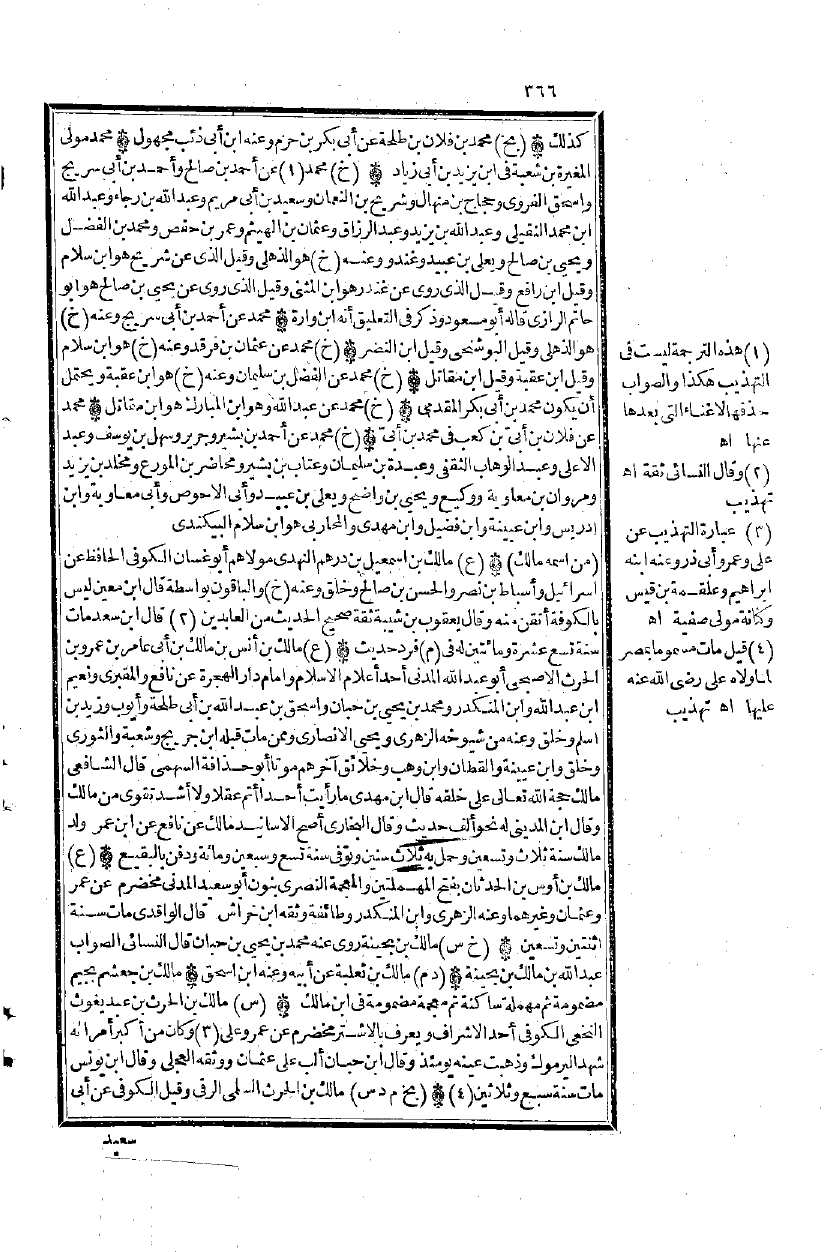 ٣٦٦
كذلك (بخ) محمد بن فلان بن طلحة عن أبي بكر بن حزم وعنه ابن أبي ذئب مجهول محمد مولى
المغيرة بن شعبة في ابن يزيد بن أبي زياد (خ) محمد (١) عن أحمد بن صالح وأحمد بن أبي سريج
واسحق الفروي وحجاج بن منهال وشريح بن النعمان وسعيد بن أبي مريم وعبد الله بن رجاء وعبد الله
ابن محمد النفيلي وعبد الله بن يزيد وعبد الرزاق وعثمان بن الهيثم وعمر بن حفص ومحمد بن الفضل
ويحيى بن صالح ويعلى بن عبيد وغندر وعنه (خ) هو الذهلي وقيل الذى عن شريح هو ابن سلام
وقيل ابن رافع وقيل الذى روى عن غندر هو ابن المثنى وقيل الذى روى عن يحيى بن صالح هو ابو
حاتم الرازى قاله أبو مسعود وذكر فى التعليق أنه ابن وارة محمد عن أحمد بن أبى سريج وعنه (خ)
هو الذهلى وقيل البوشنجى وقيل ابن النضر (خ) محمد عن عثمان بن فرقد وعنه (خ) هو ابن سلام
وقيل ابن عقبة وقيل ابن مقاتل (خ) محمد عن الفضل بن سليمان وعنه (خ) هو ابن عقبة ويحتمل
أن يكون محمد بن أبى بكر المقدمى (خ) محمد عن عبد الله وهو ابن المبارك هو ابن مقاتل محمد
عن فلان بن أبى بن كعب فى محمد بن أبى (خ) محمد عن أحمد بن بشير وجرير وسهل بن يوسف وعبد
الاعلى وعبد الوهاب الثقفى وعبدة بن سليمان وعتاب بن بشير ومحاضر بن المورع ومخلد بن يزيد
ومروان بن معاوية ووكيع ويحيى بن واضح ويعلى بن عبيد وأبى الاحوص وأبى معاوية وابن
ادريس وابن عيينة وابن فضيل وابن مهدى والمحاربى هو ابن سلام البيكندى
(من اسمه مالك) (ع) مالك بن اسمعيل بن درهم النهدى مولاهم أبو غسان الكوفى الحافظ عن
اسرائيل وأسباط بن نصر والحسن بن صالح وخلق وعنه (خ) والباقون بواسطة قال ابن معين ليس
بالكوفة أتقن منه وقال يعقوب بن شيبة ثقة صحيح الحديث من العابدين (٢) قال ابن سعد مات
سنة تسع عشرة ومائتين له فى (م) فرد حديث (ع) مالك بن أنس بن مالك بن أبى عامر بن عمرو بن
الحرث الاصبحى أبو عبد الله المدنى أحد أعلام الاسلام وامام دار الهجرة عن نافع والمقبرى ونعيم
ابن عبد الله وابن المنكدر ومحمد بن يحيى بن حبان واسحق بن عبد الله بن أبى طلحة وأيوب وزيد بن
اسلم وخلق وعنه من شيوخه الزهرى ويحيى الانصارى وممن مات قبله ابن جريج وشعبة والثورى
وخلق وابن عيينة والقطان وابن وهب وخلائق آخرهم موتا أبو حذافة السهمى قال الشافعى
مالك حجة الله تعالى على خلقه قال ابن مهدى ما رأيت أحدا أتم عقلا ولا أشد تقوى من مالك
وقال ابن المدينى له نحو ألف حديث وقال البخارى أصح الاسانيد مالك عن نافع عن ابن عمر ولد
مالك سنة ثلاث وتسعين وحمل به ثلاث سنين وتوفى سنة تسع وسبعين ومائة ودفن بالبقيع (ع)
مالك بن أوس بن الحدثان بفتح المهملتين والمعجمة النصرى بنون أبو سعيد المدنى مخضرم عن عمر
وعثمان وغيرهما وعنه الزهرى وابن المنكدر وطائفة وثقه ابن خراش قال الواقدى مات سنة
اثنتين وتسعين (خ س) مالك بن بحينة روى عنه محمد بن يحيى بن حبان قال النسائى الصواب
عبد الله بن مالك بن بحينة (د م) مالك بن ثعلبة عن أبيه وعنه ابن اسحق مالك بن جعشم بجيم
مضمومة ثم مهملة ساكنة ثم معجمة مضمومة فى ابن مالك (س) مالك بن الحرث بن عبد يغوث
النخعى الكوفى أحد الاشراف ويعرف بالاشتر مخضرم عن عمر وعلى (٣) وكان من أكبر أمرائه
شهد اليرموك وذهبت عينه يومئذ وقال ابن حبان ألب على عثمان ووثقه العجلى وقال ابن يونس
مات سنة سبع وثلاثين (٤) (بخ م د س) مالك بن الحرث السلمى الرقى وقيل الكوفى عن أبى
سعيد
(١) هذه الترجمة ليست فى
التهذيب هكذا والصواب
حذفها الاغناء التى بعدها
عنها اه
(٢) وقال النسائى ثقة اه
تهذيب
(٣) عبارة التهذيب عن
على وعمر وأبى ذر وعنه ابنه
ابراهيم وعلقمة بن قيس
وكنانة مولى صفية اه
(٤) قيل مات مسموما بمصر
لما ولاه على رضى الله عنه
عليها اه تهذيب